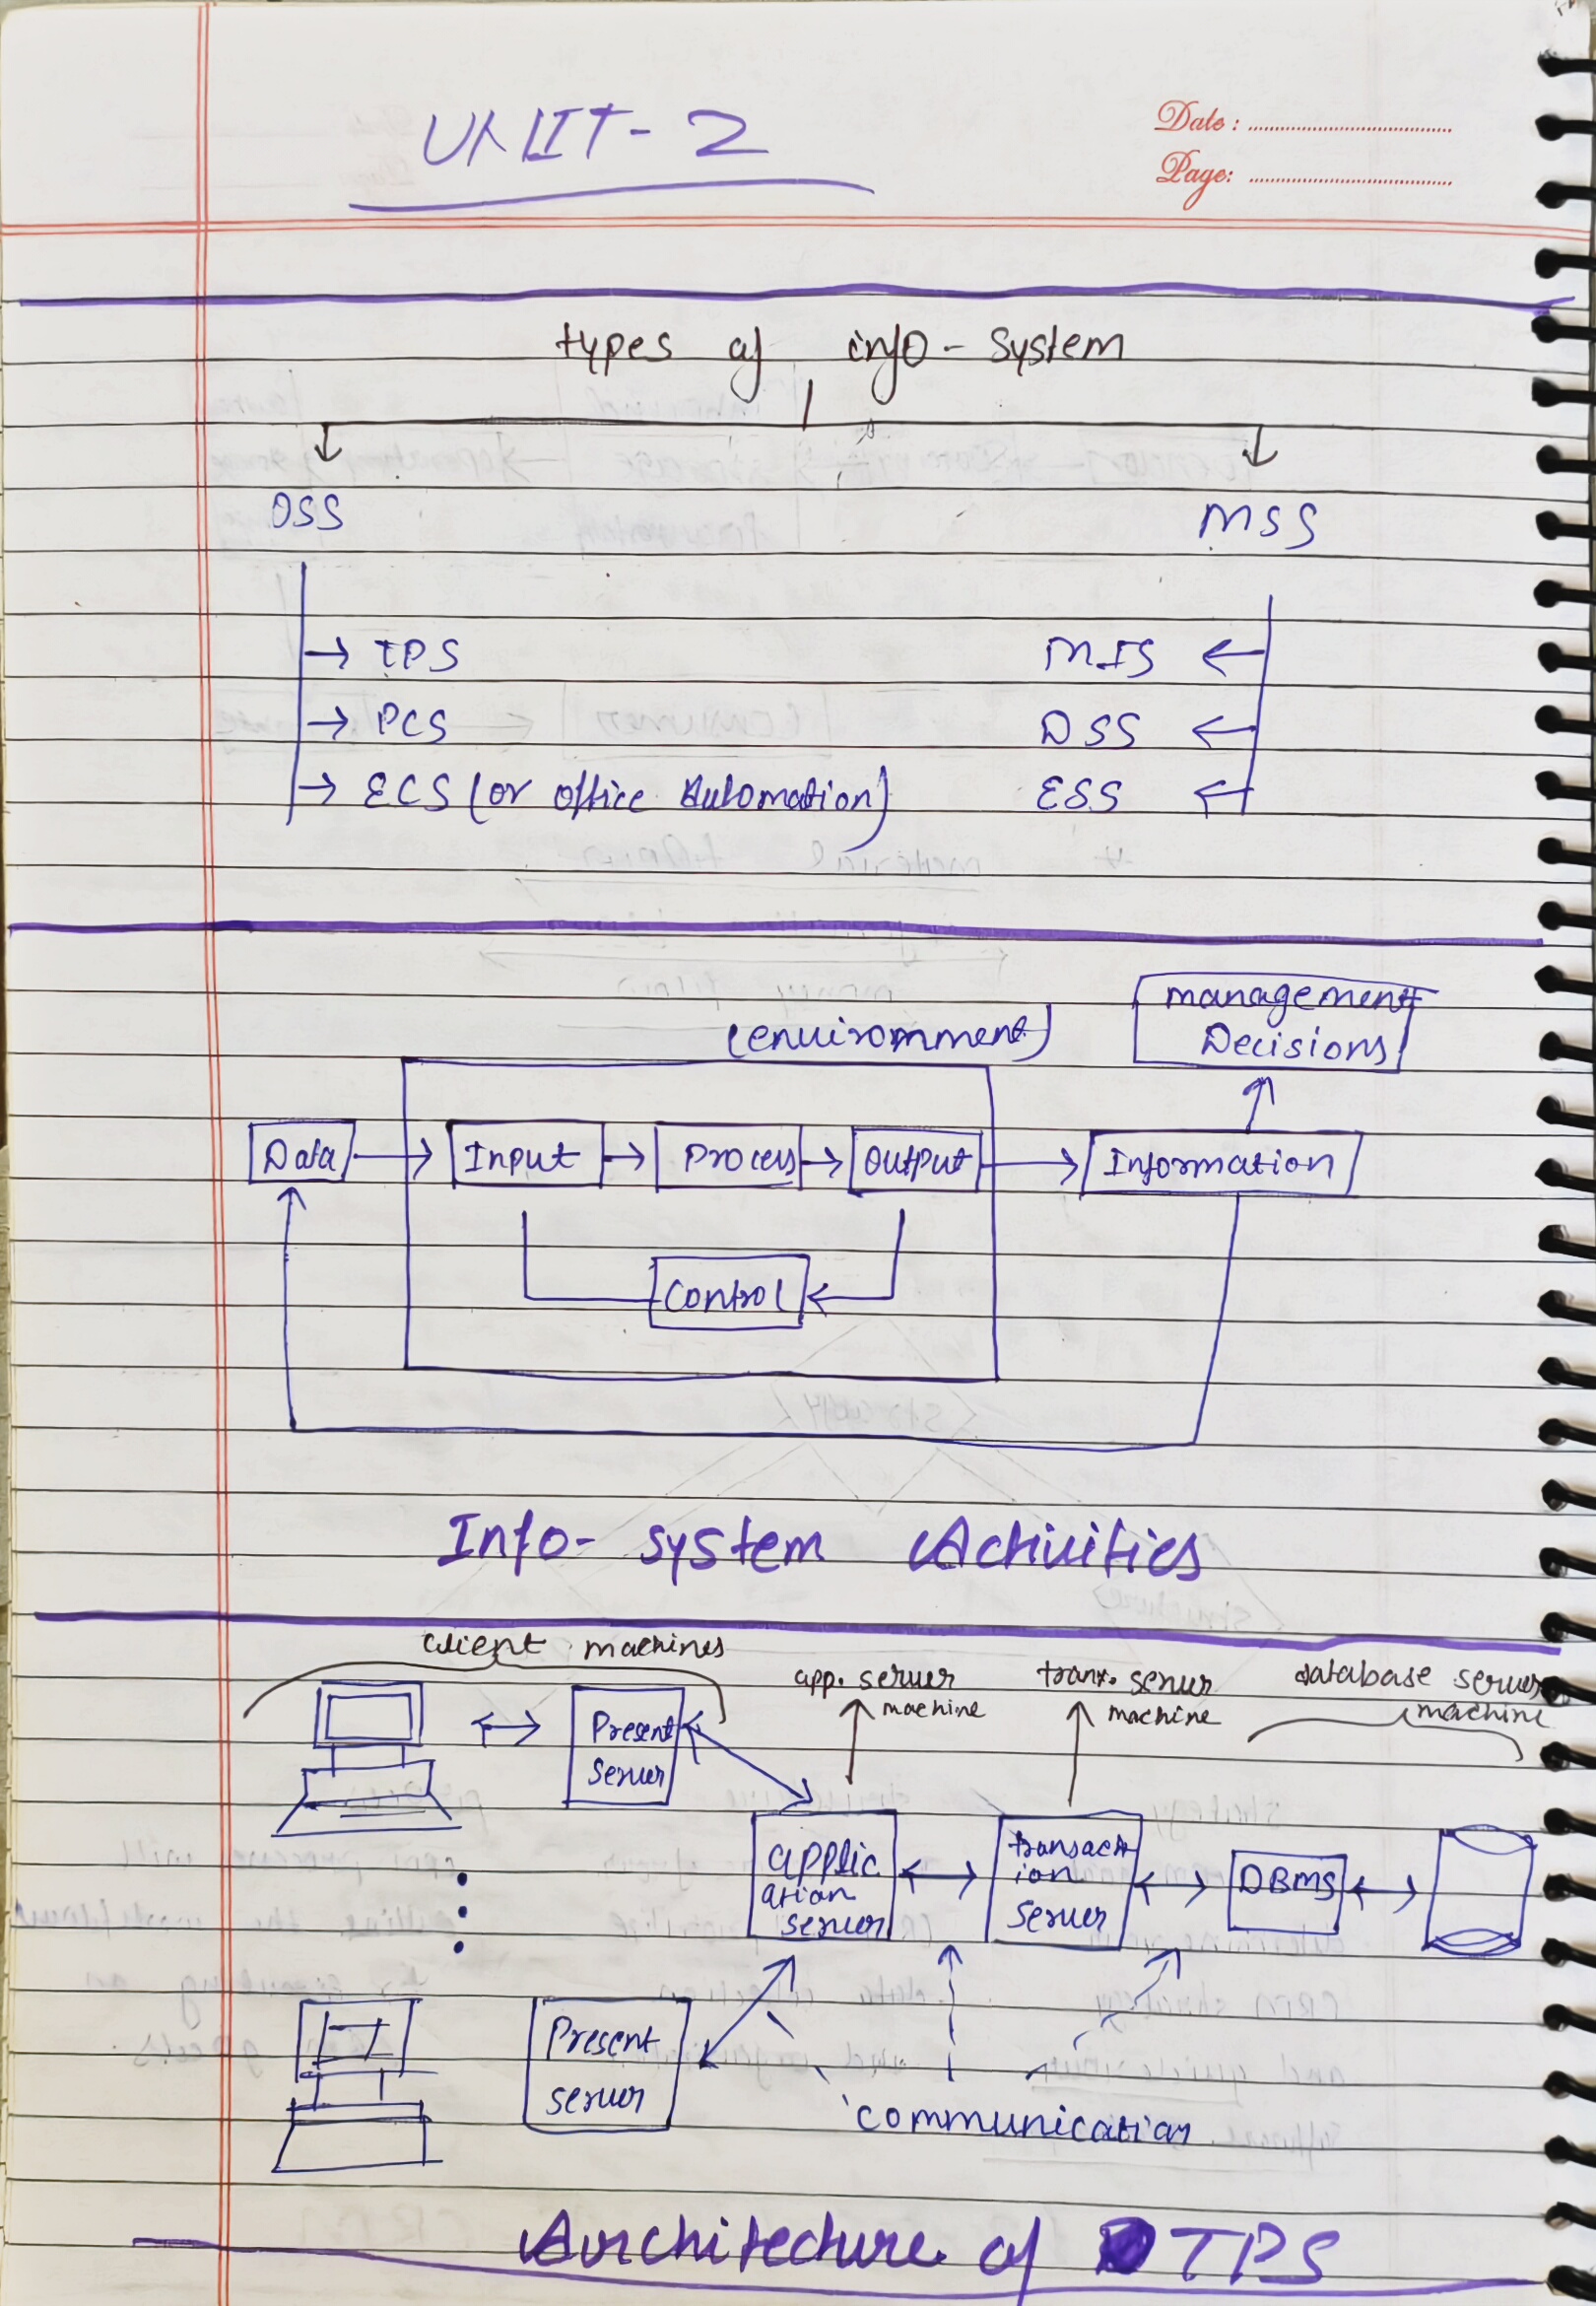 UNIT-2
Date :
Page:
types of info-system
OSS
MSS
TPS
MIS
PCS
DSS
ECS (or office Automation)
ESS
(environment)
management
Decisions
Data
Input
Process
Output
Information
Control
Info-system Activities
client machines
app. server
machine
tranx. server
machine
database server
machine
Present
server
applic
ation
server
transact
ion
server
DBMS
Present
server
communication
Architecture of TPS